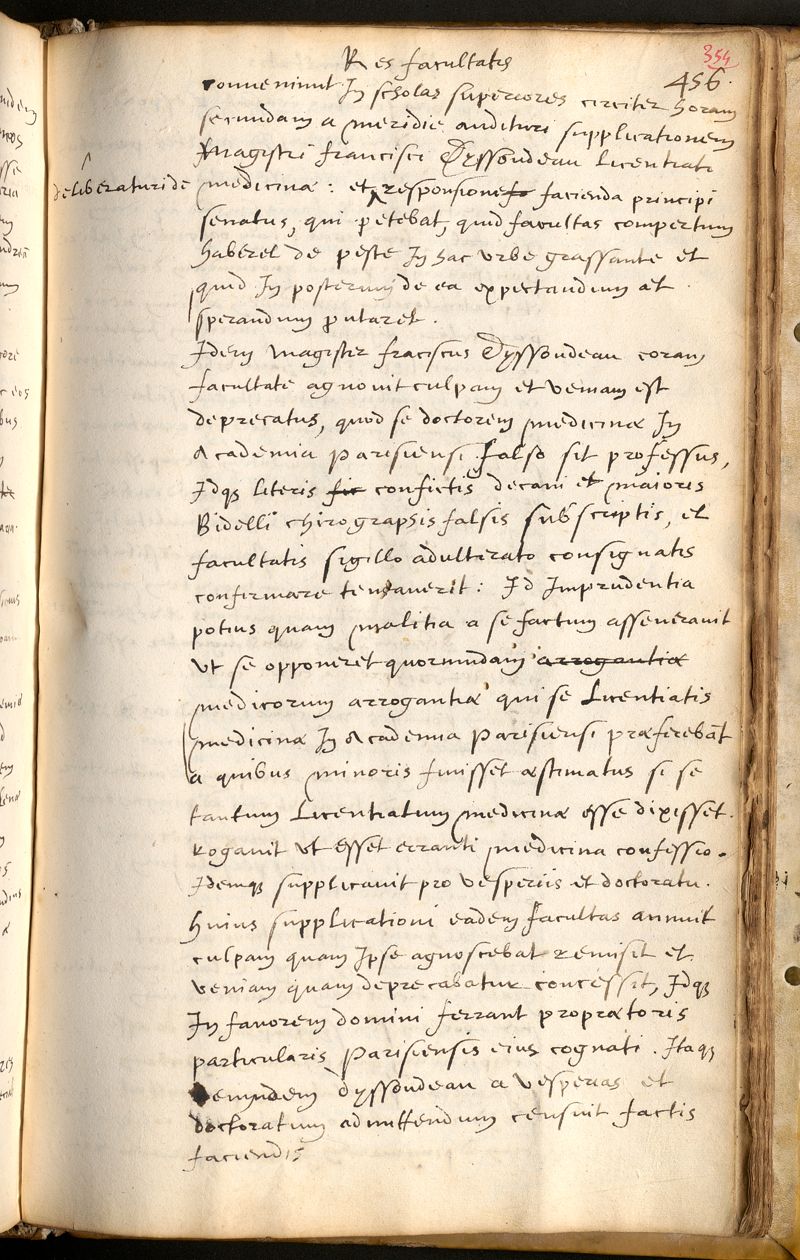 Res facultatis
354
456.
conveniunt In scholas superiores circiter horam
secundam a meridie audituri supplicationem
Magistri francisci Dyssoudeau licentiati
deliberaturi de
medicinæ: et responsione facienda principi
senatus, qui petebat, quid facultas compertum
haberet de peste In hac urbe grassante et
quid In posterum de ea expectandum et
sperandum putaret.
Idem magister fraciscus Dyssoudeau coram
facultate agnovit culpam et veniam est
deprecatus, quod se doctorem medicinæ In
Academia parisiensi falso sit professus,
Idq; literis confictis decani et maioris
Bidelli chirographis falsis subscriptis, et
facultatis sigillo adulterato consignatis
confirmare tentaverit: Id Imprudentia
potius quam malitia a se factum asseveravit
ut se opponeret quorundam arrogantiæ
medicorum arrogantiæ qui se Licentiatis
medicinæ In Academia parisiensi præferebāt
a quibus minoris fuisset æstimatus si se
tantum Licentiatum medicinæ esse dixisset.
Rogavit ut esset erranti medicina confessio.
Idemq; supplicavit pro vesperiis et doctoratu.
huius supplicationi eadem facultas annuit
culpam quam Ipse agnoscebat remisit et
veniam quam deprecabatur concessit, Idq;
In favorem domini ferrant proprætoris
particularis parisiensis eius cognati. Itaq;
eundem dyssoudeau a vesperias et
doctoratum admittendum censuit factis
faciendis